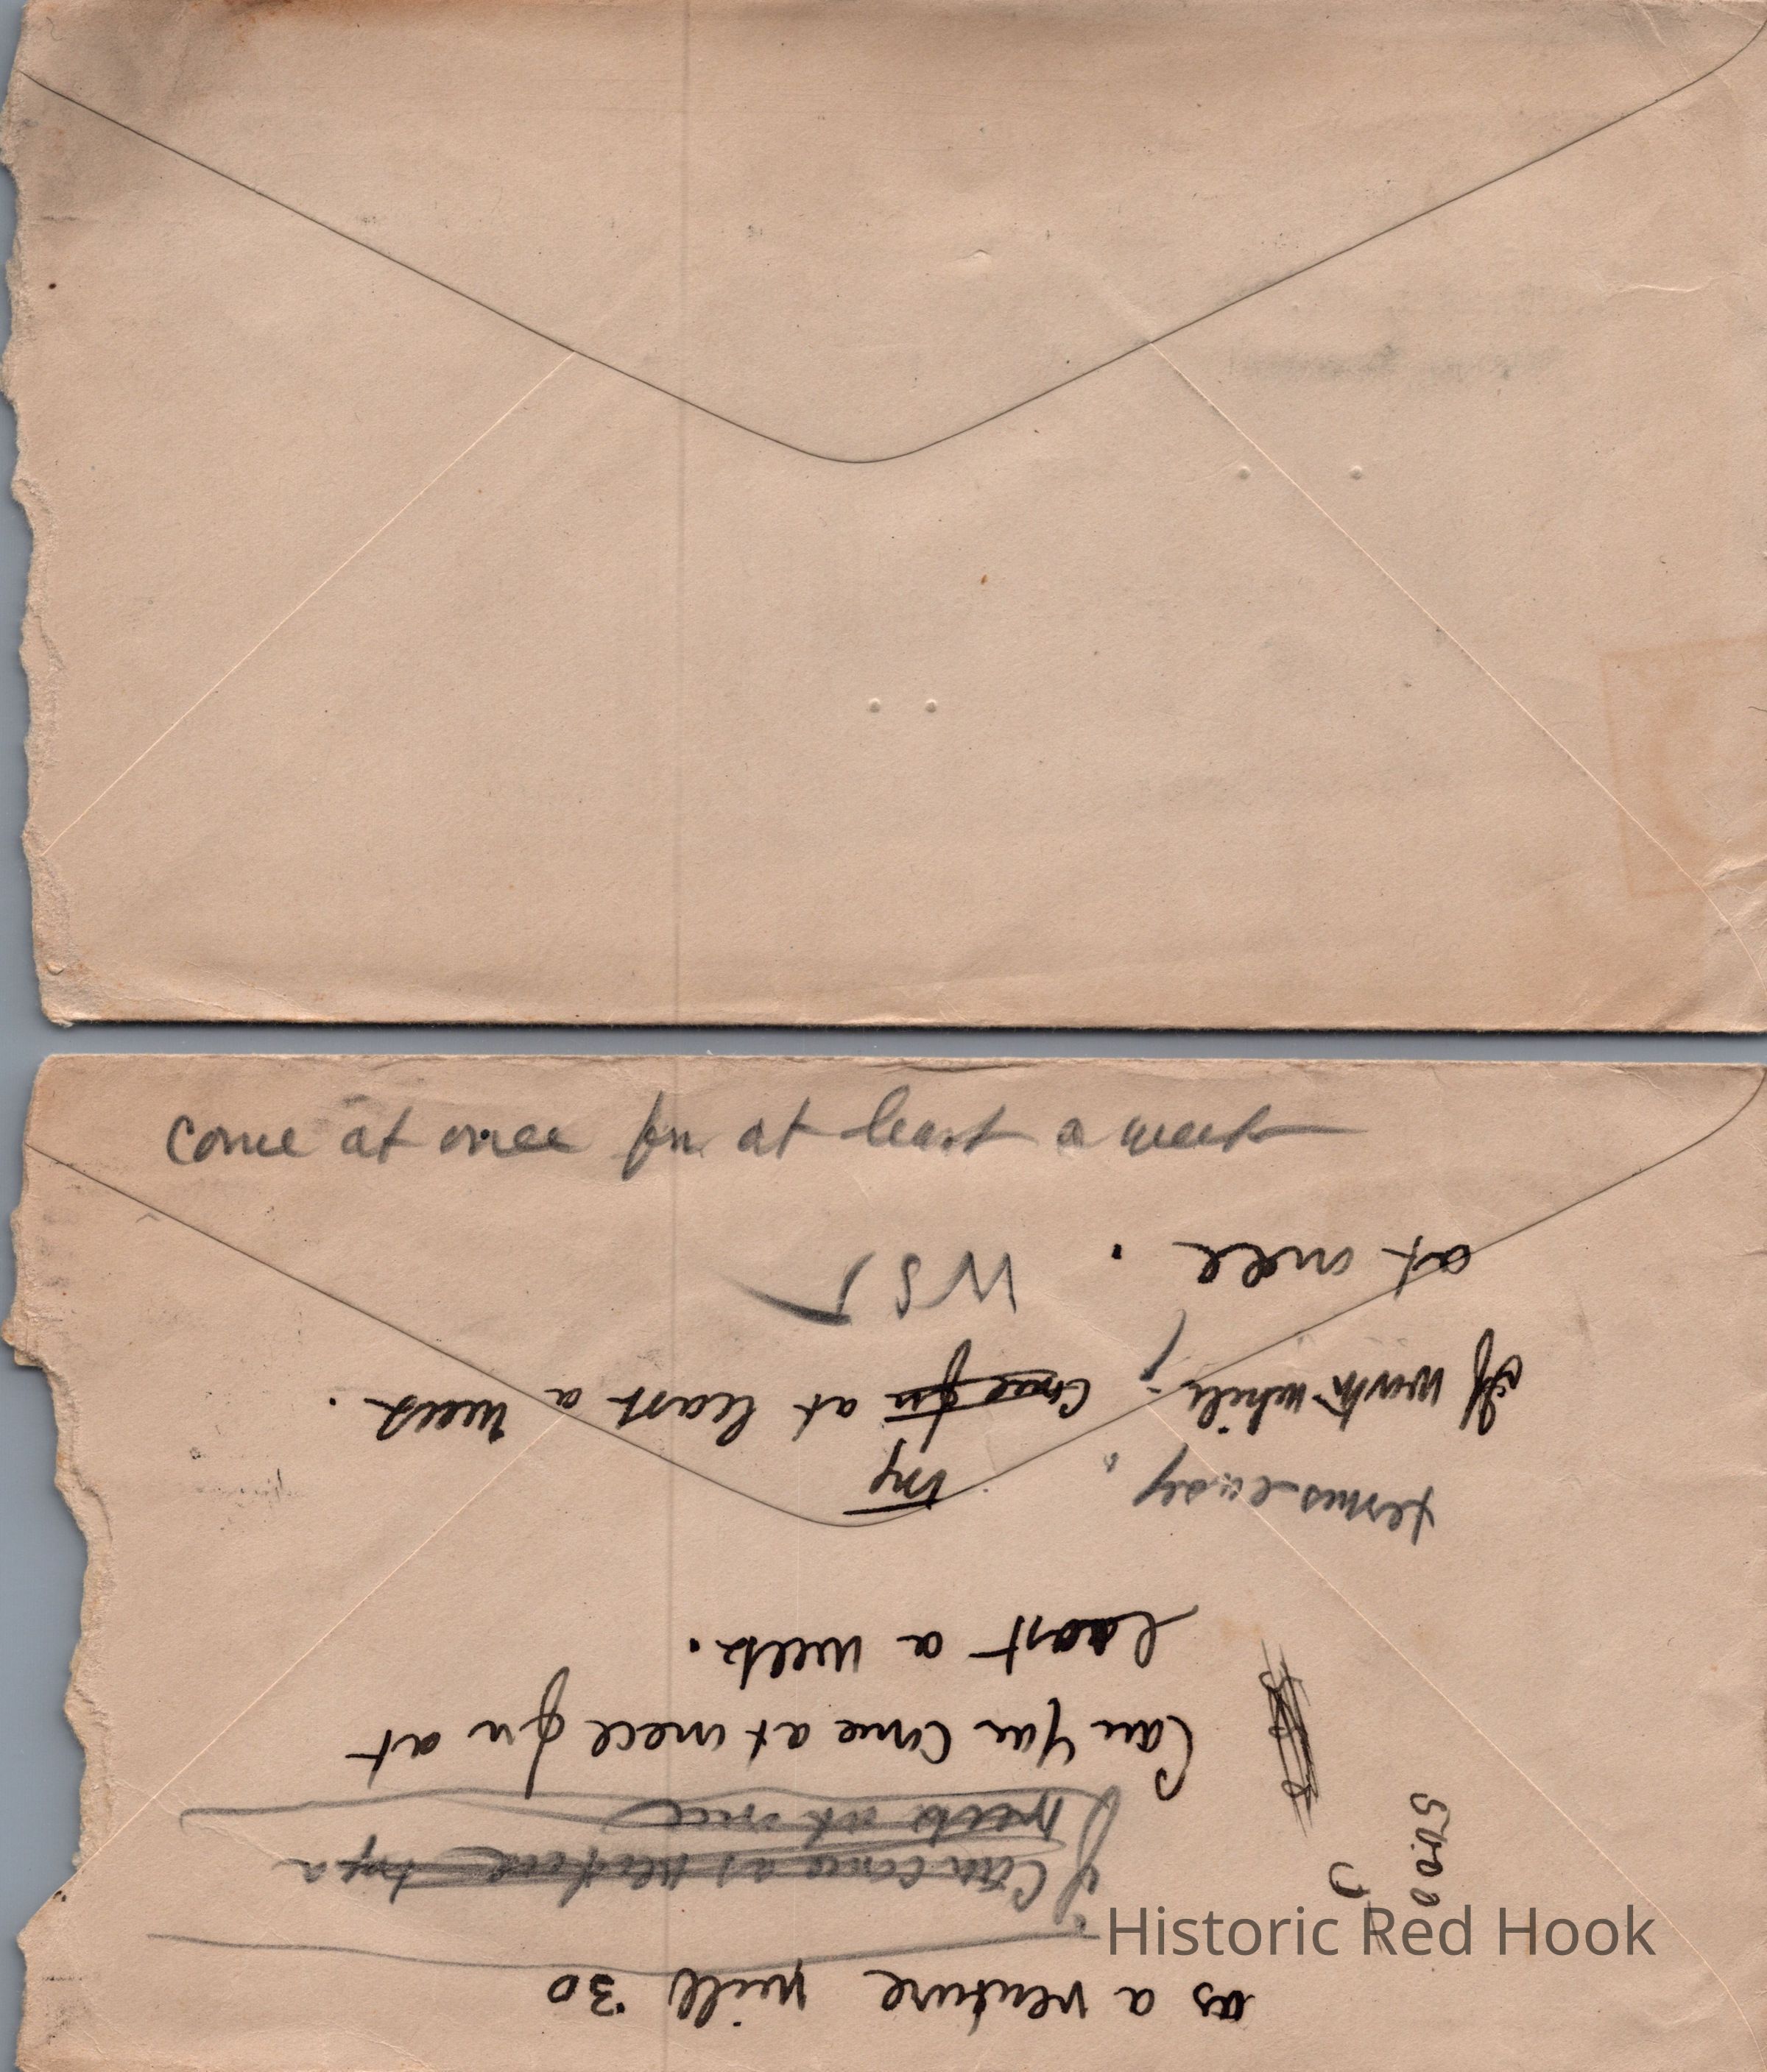 come at once for at least a week
as a venture will 30
if Can come as before
week at once
Can you come at once for at
least a week.
terms easy,
my
if worth while, Come for at least a week.
at once.
W S
50.00
Historic Red Hook